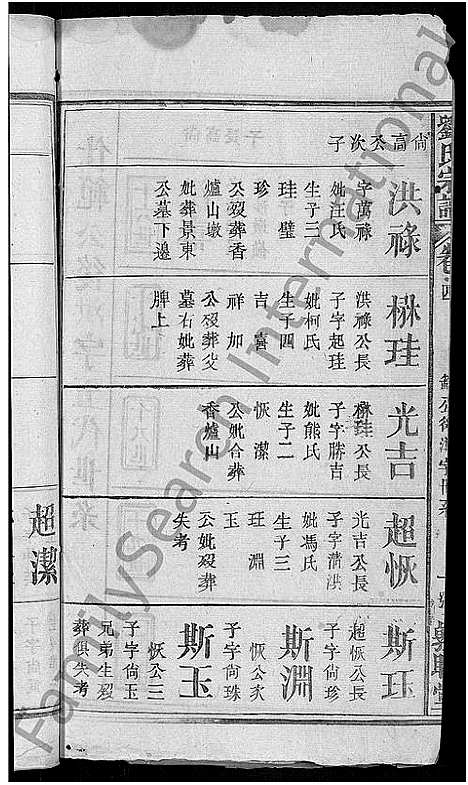 劉氏宗譜
尙高公次子
洪祿
字萬祿
妣汪氏
生子三
珪璧
珍
公歿葬香
爐山嶽
妣葬景東
公墓下邊
楙珪
洪祿公長
子字起珪
妣柯氏
生子四
吉富
祥加
公歿葬父
墓右妣葬
脾上
光吉
楙珪公長
子字勝吉
妣熊氏
生子二
恢潔
公妣合葬
香爐山
超恢
光吉公長
子字清洪
妣馮氏
生子三
玨淵
玉
公妣歿葬
失考
斯玨
超恢公長
子字尙珍
斯淵
恢公次
子字尙珠
斯玉
恢公三
子字尙玉
兄弟生歿
葬俱失考
超潔
FamilySearch International